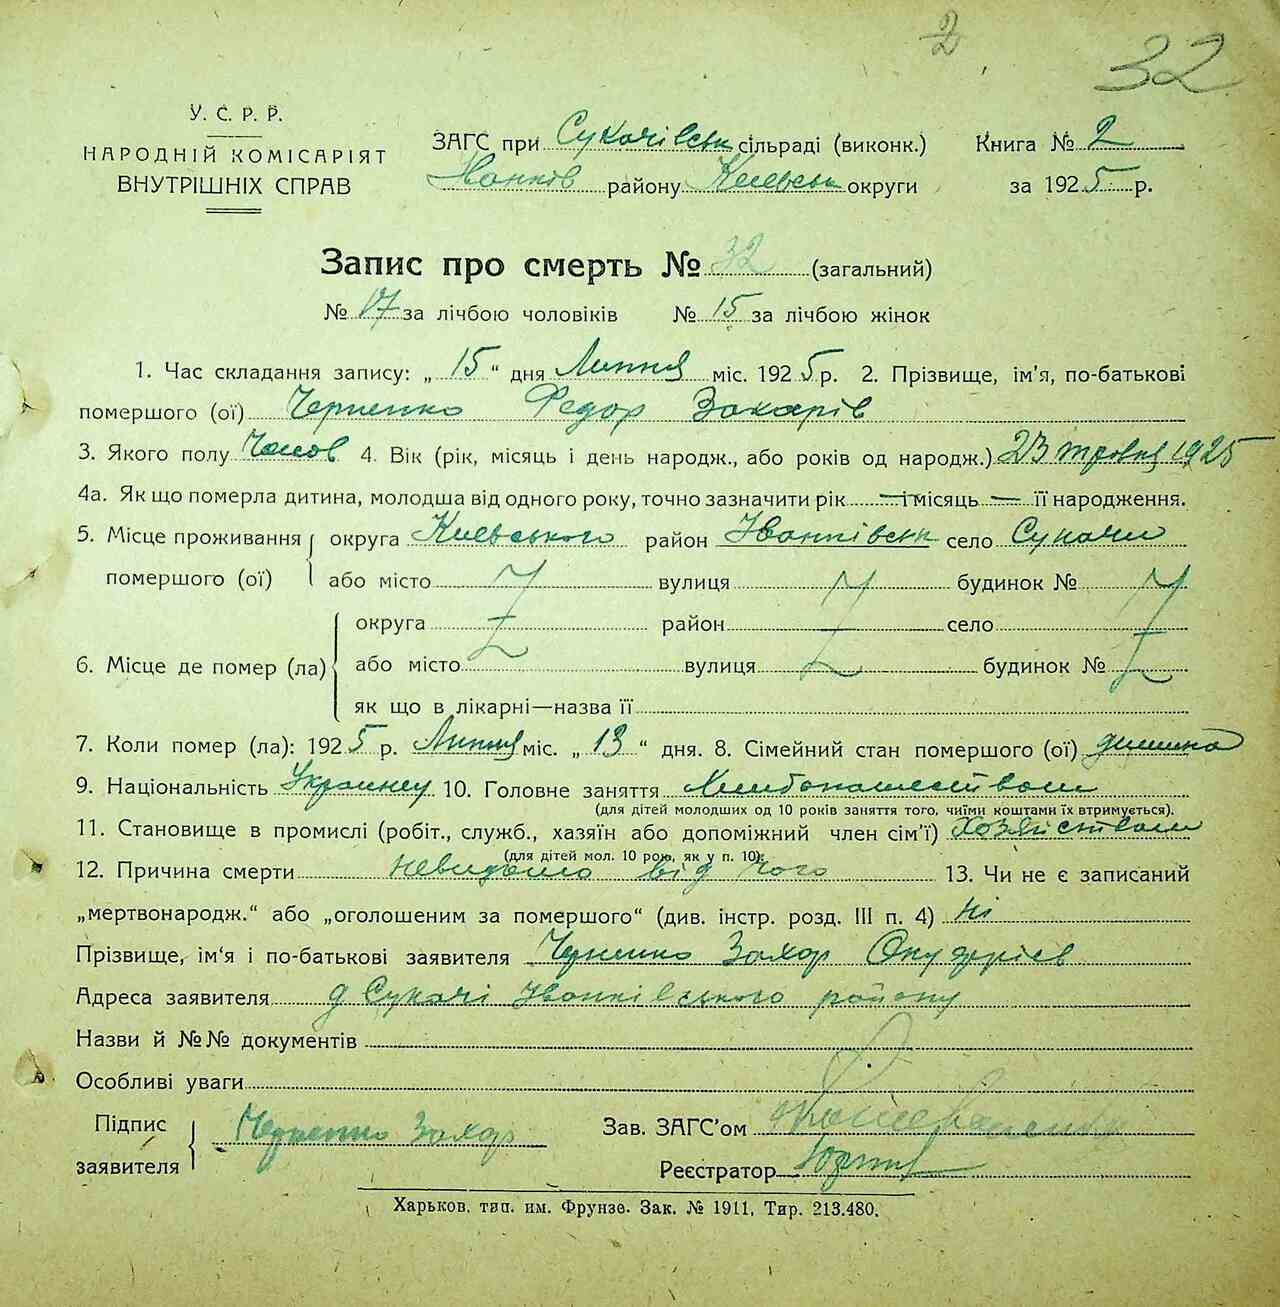 2
32
У. С. Р. Р.
НАРОДНІЙ КОМІСАРІЯТ
ВНУТРІШНІХ СПРАВ
ЗАГС при Сукачівськ сільраді (виконк.) Книга № 2
Іванків району Київськ округи за 1925 р.
Запис про смерть № 32 (загальний)
№ 17 за лічбою чоловіків № 15 за лічбою жінок
1. Час складання запису: „15“ дня Липня міс. 1925 р. 2. Прізвище, ім'я, по-батькові
помершого (ої) Черненко Федор Захарів
3. Якого полу Чолов 4. Вік (рік, місяць і день народж., або років од народж.) 23 травня 1925
4а. Як що померла дитина, молодша від одного року, точно зазначити рік — і місяць — її народження.
5. Місце проживання округа Киевського район Іванківськ село Сукачи
помершого (ої) або місто вулиця будинок №
округа район село
6. Місце де помер (ла) або місто вулиця будинок №
як що в лікарні—назва її
7. Коли помер (ла): 1925 р. Липня міс. „13“ дня. 8. Сімейний стан помершого (ої) дитина
9. Національність Украинец 10. Головне заняття Хлибопашеством
(для дітей молодших од 10 років заняття того, чиїми коштами їх втримується).
11. Становище в промислі (робіт., служб., хазяїн або допоміжний член сім'ї) Хозяйством
(для дітей мол. 10 рою, як у п. 10).
12. Причина смерти невидомо від чого 13. Чи не є записаний
„мертвонародж.“ або „оголошеним за помершого“ (див. інстр. розд. III п. 4) ні
Прізвище, ім'я і по-батькові заявителя Черненко Захар
Адреса заявителя д Сукачі Іванківського району
Назви й №№ документів
Особливі уваги
Підпис
заявителя Черненко Захар
Зав. ЗАГС'ом
Реєстратор
Харьков, тип. им. Фрунзе. Зак. № 1911, Тир. 213.480.